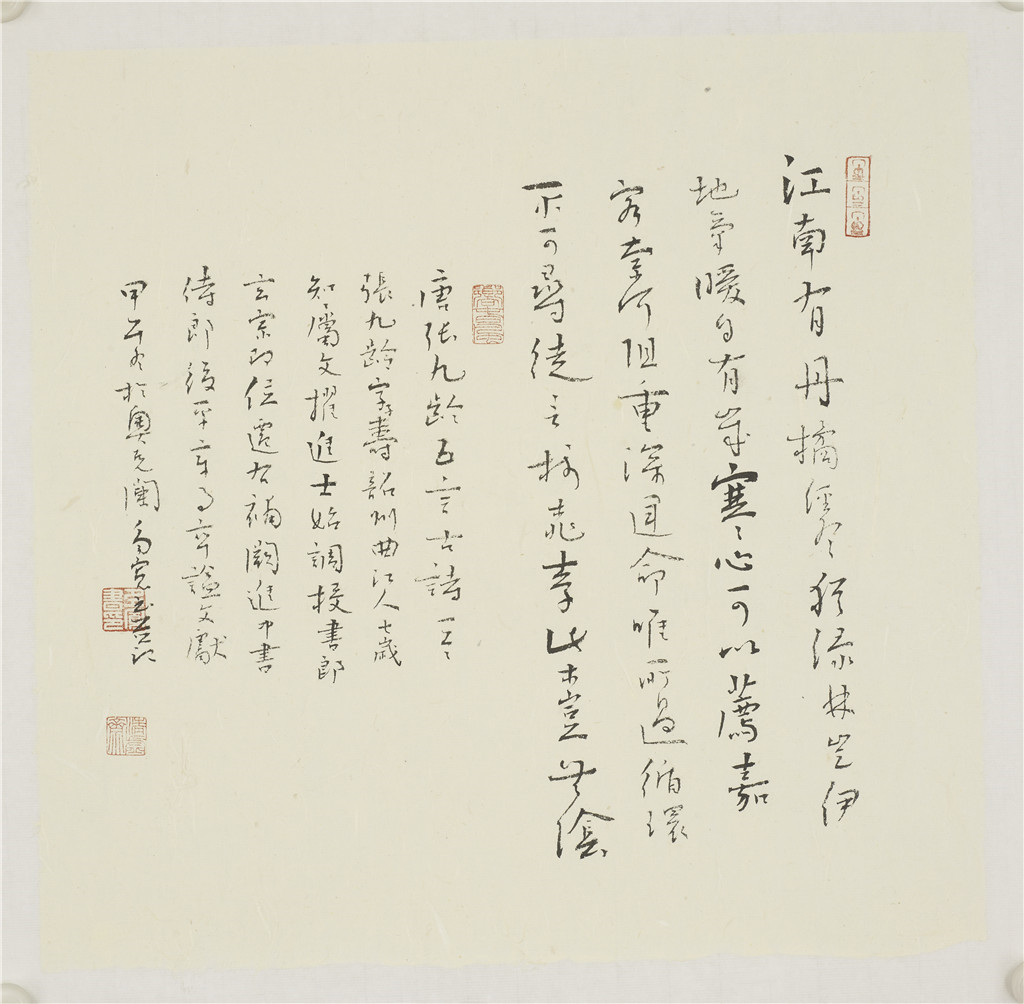 江南有丹橘經冬猶綠林豈伊
地氣暖自有歲寒心可以薦嘉
客奈何阻重深運命唯所遇循環
不可尋徒言樹桃李此木豈無陰
唐張九齡五言古詩一首
張九齡字子壽韶州曲江人七歲
知屬文擢進士始調校書郎
玄宗即位遷右補闕進中書
侍郎後平章事卒謚文獻
甲午冬於奧克蘭